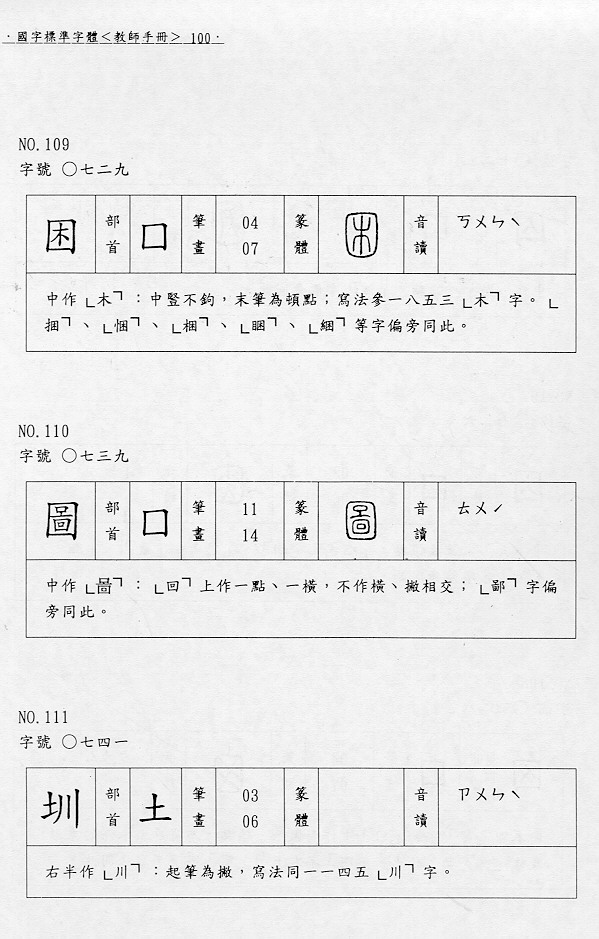 ·國字標準字體＜教師手冊＞ 100·
NO.109
字號 〇七二九
困 部首 囗 筆畫 04 07 篆體 困 音讀 ㄎㄨㄣˋ
中作└木┐：中豎不鉤，末筆為頓點；寫法參一八五三└木┐字。└
捆┐、└悃┐、└梱┐、└睏┐、└綑┐等字偏旁同此。
NO.110
字號 〇七三九
圖 部首 囗 筆畫 11 14 篆體 圖 音讀 ㄊㄨˊ
中作└啚┐：└回┐上作一點、一橫，不作橫、撇相交；└鄙┐字偏
旁同此。
NO.111
字號 〇七四一
圳 部首 土 筆畫 03 06 篆體 音讀 ㄗㄨㄣˋ
右半作└川┐：起筆為撇，寫法同一一四五└川┐字。